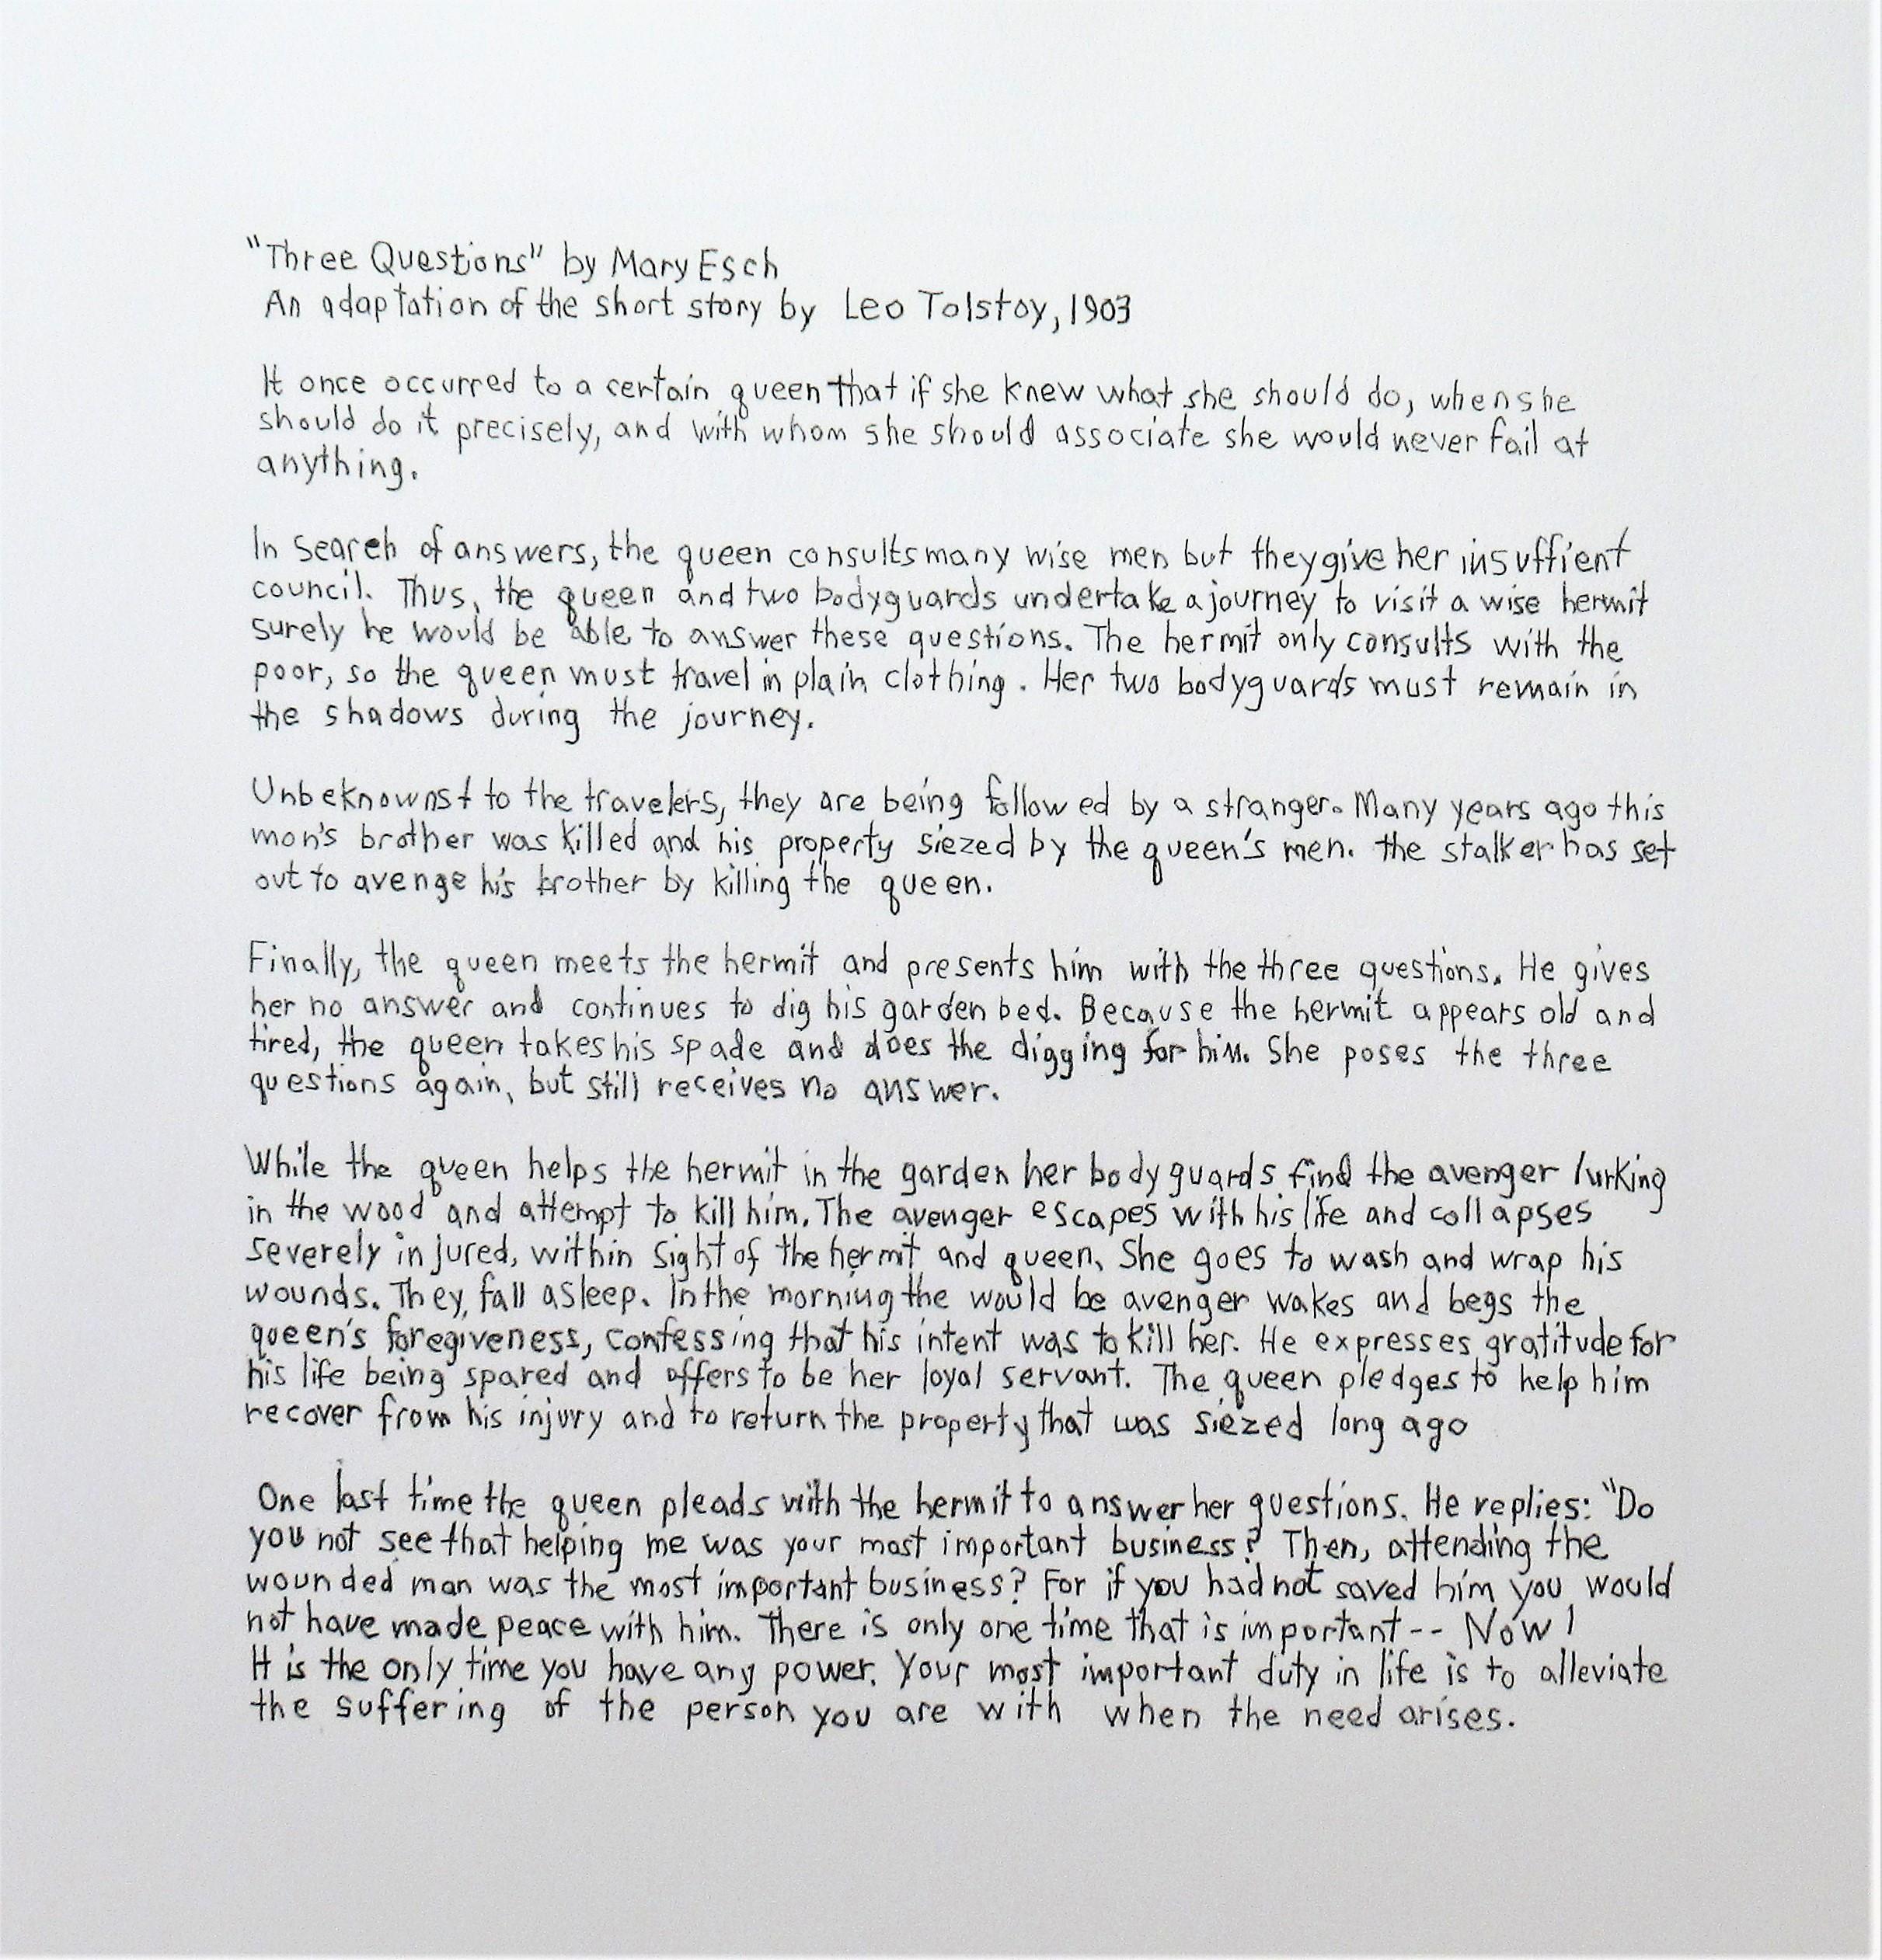 "Three Questions" by Mary Esch
An adaptation of the short story by Leo Tolstoy, 1903
It once occurred to a certain queen that if she knew what she should do, when she
should do it precisely, and with whom she should associate she would never fail at
anything.
In search of answers, the queen consults many wise men but they give her insuffient
council. Thus, the queen and two bodyguards undertake a journey to visit a wise hermit
surely he would be able to answer these questions. The hermit only consults with the
poor, so the queen must travel in plain clothing. Her two bodyguards must remain in
the shadows during the journey.
Unbeknownst to the travelers, they are being followed by a stranger. Many years ago this
man's brother was killed and his property siezed by the queen's men. the stalker has set
out to avenge his brother by killing the queen.
Finally, the queen meets the hermit and presents him with the three questions. He gives
her no answer and continues to dig his garden bed. Because the hermit appears old and
tired, the queen takes his spade and does the digging for him. She poses the three
questions again, but still receives no answer.
While the queen helps the hermit in the garden her body guards find the avenger lurking
in the wood and attempt to kill him. The avenger escapes with his life and collapses
severely injured, within sight of the hermit and queen. She goes to wash and wrap his
wounds. They fall asleep. In the morning the would be avenger wakes and begs the
queen's foregiveness, confessing that his intent was to kill her. He expresses gratitude for
his life being spared and offers to be her loyal servant. The queen pledges to help him
recover from his injury and to return the property that was siezed long ago
One last time the queen pleads with the hermit to answer her questions. He replies: "Do
you not see that helping me was your most important business? Then, attending the
wounded man was the most important business? For if you had not saved him you would
not have made peace with him. There is only one time that is important -- Now!
It is the only time you have any power. Your most important duty in life is to alleviate
the suffering of the person you are with when the need arises.